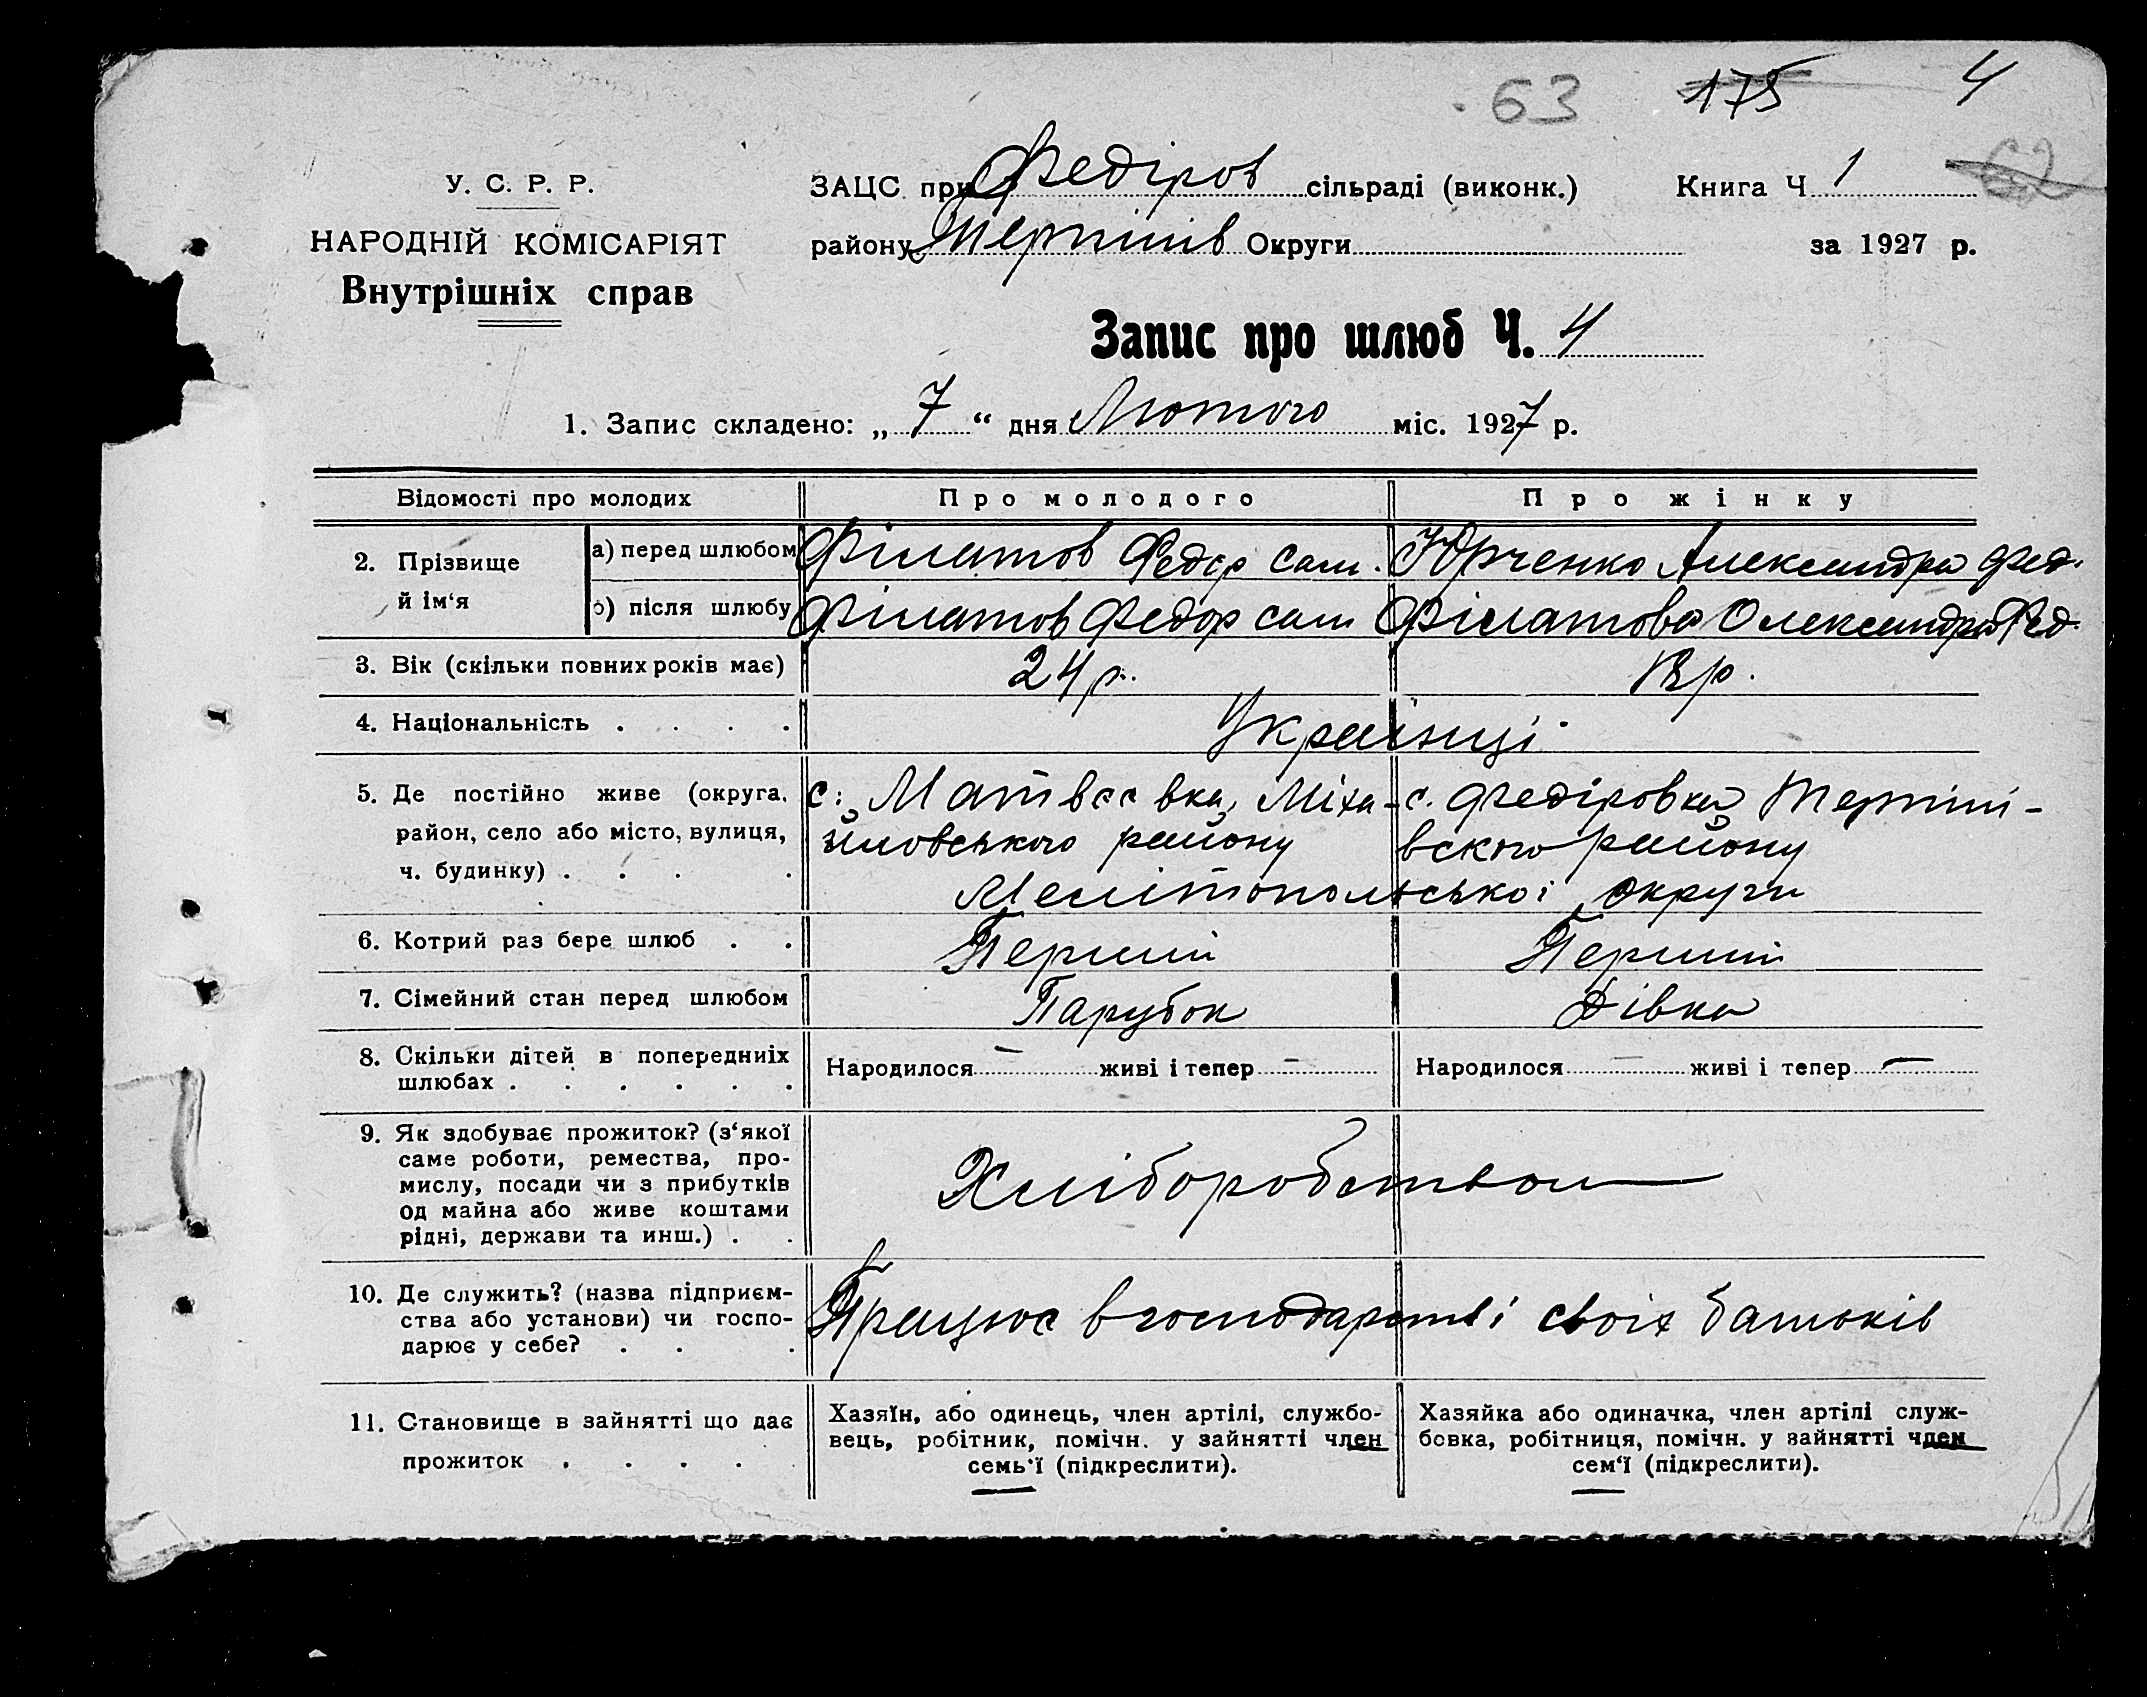 63 175 4
У. С. Р. Р. ЗАЦС при Федіров сільраді (виконк.) Книга Ч 1 62
НАРОДНІЙ КОМІСАРІЯТ району Терпінів Округи за 1927 р.
Внутрішніх справ
Запис про шлюб Ч. 4
1. Запис складено: „ 7 “ дня Лютого міс. 1927 р.
Відомості про молодих Про молодого Про жінку
2. Прізвище й ім‘я
а) перед шлюбом Філатов Федір Сам. Юрченко Александра Фед.
б) після шлюбу Філатов Федор Сам Філатова Олександра Фед.
3. Вік (скільки повних років має) 24 р. 18 р.
4. Національність . . . . Українці
5. Де постійно живе (округа, с. Матвєєвка, Міха- с. Федіровка Терпіні-
район, село або місто, вулиця, йловського району вского району
ч. будинку) . . . . Мелітопольської округи
6. Котрий раз бере шлюб . . Перший Перший
7. Сімейний стан перед шлюбом Парубок Дівка
8. Скільки дітей в попередніх Народилося — живі і тепер — Народилося — живі і тепер —
шлюбах . . . . . .
9. Як здобуває прожиток? (з‘якої
саме роботи, ремества, про-
мислу, посади чи з прибутків Хліборобством
од майна або живе коштами
рідні, держави та инш.) . .
10. Де служить? (назва підприєм-
ства або установи) чи госпо- Працює в господарстві своіх батьків
дарює у себе? . . .
11. Становище в зайнятті що дає Хазяїн, або одинець, член артілі, службо- Хазяйка або одиначка, член артілі служ-
вець, робітник, помічн. у зайнятті член бовка, робітниця, помічн. у зайнятті член
прожиток . . . . . семь‘ї (підкреслити). сем‘ї (підкреслити).